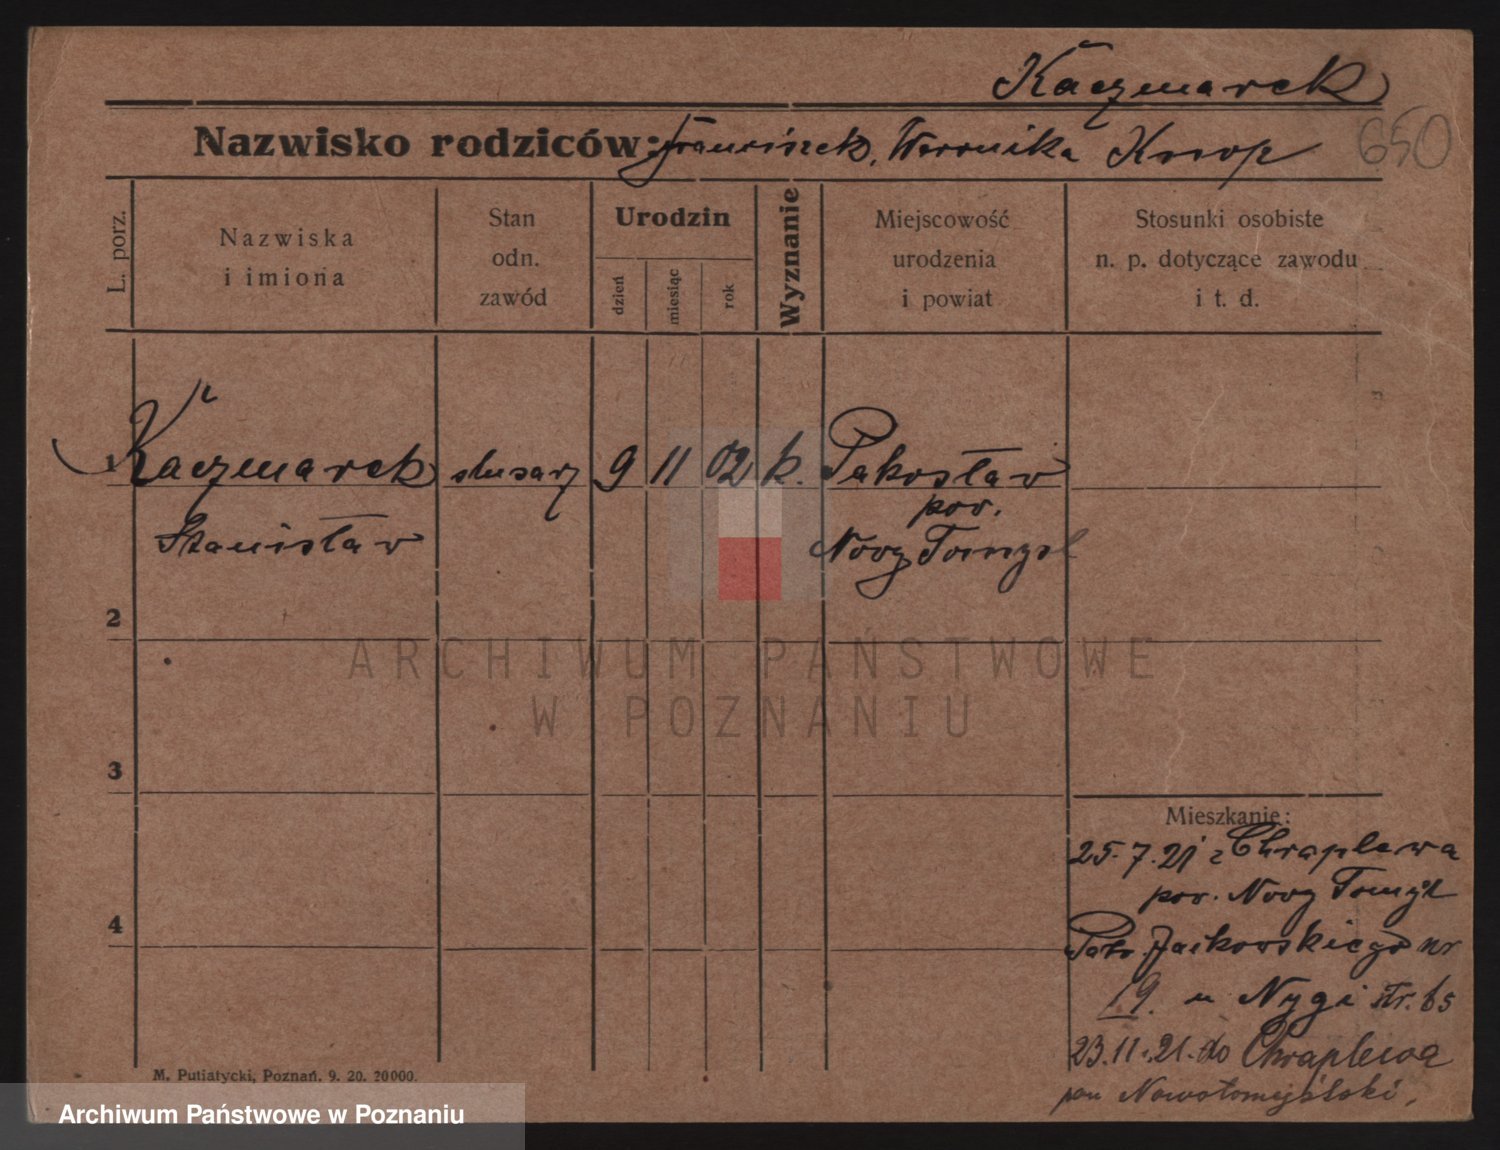 Kaczmarek
Nazwisko rodziców: Franciszek, Weronika Knop
650
L. porz.
Nazwiska
i imiona
Stan
odn.
zawód
Urodzin
dzień
miesiąc
rok
Wyznanie
Miejscowość
urodzenia
i powiat
Stosunki osobiste
n. p. dotyczące zawodu
i t. d.
1 Kaczmarek ślusarz 9 11 02 k. Pakosław
pow.
Stanisław Nowy Tomyśl
2
ARCHIWUM PAŃSTWOWE
W POZNANIU
3
Mieszkanie:
25.7.21 z Chraplewa
pow. Nowy Tomyśl
4
Jackowskiego nr
19. u Nygi str. 65
23.11.21. do Chraplewa
pow Nowotomyślski.
M. Putiatycki, Poznań. 9. 20. 20000.
Archiwum Państwowe w Poznaniu